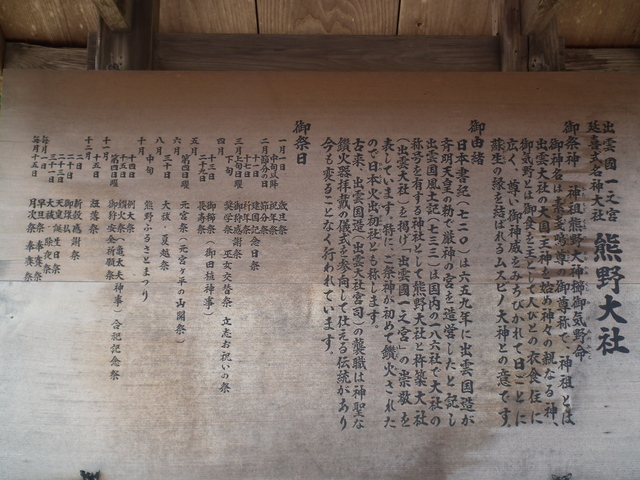 出雲國一之宮
延喜式名神大社
熊野大社
御祭神 神祖熊野大神櫛御気野命
御神名は素戔嗚尊の御尊称で、神祖とは
出雲大社の大国主神を始め神々の親なる神、
御気野とは御食を主宰して人びとの衣食住に
広く、尊い御神威をみちびかれて日ごとに
蘇生の縁を結ばれるムスビノ大神との意です。
御由緒
日本書紀(七二〇)は六五九年に出雲国造が
斉明天皇の勅で厳神の宮を造営したと記し
出雲国風土記(七三三)は国内の一八六社で大社の
称号を有する神社として熊野大社と杵築大社
(出雲大社)を掲げ「出雲國一之宮」の崇敬を
表しています。特に、ご祭神が初めて鑽火された
ので日本火出初社とも称します。
古来、出雲国造(出雲大社宮司)の襲職は神聖な
鑽火器拝戴の儀式を参向して仕える伝統があり
今も変ることなく行われています。
御祭日
一月一日 歳旦祭
中旬以降 祈年祭
二月節分の日 節分祭
十一日 建国記念日祭
十七日
三月上旬日曜
下旬 奨学祭 巫女交替祭 立志お祝いの祭
四月十三日 御櫛祭(御田植神事)
二十九日 長寿祭
五月
六月 第四日曜 元宮祭(元宮ヶ平の山開祭)
三十日 大祓・夏越祭
八月
十月 中旬 熊野ふるさとまつり
十四日 例大祭
十五日 鑽火祭(亀太夫神事)
第四日曜 御狩安全祈願祭 合祀記念祭
十一月十五日 紐落祭
十二月二日 新穀感謝祭
二十日 御煤払
二十三日 天皇誕生日祭
三十一日 大祓・除夜祭
毎月一日 早旦祭 奉賽祭
毎月十五日 月次祭 奉賽祭